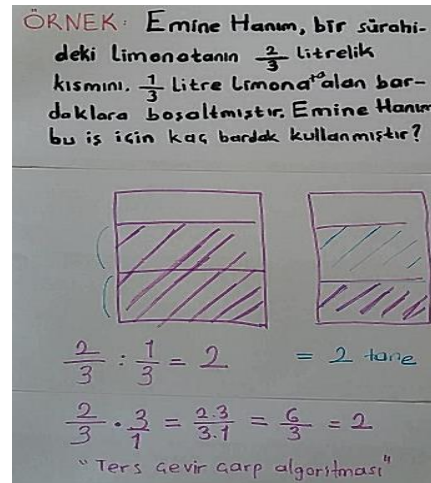 ÖRNEK: Emine Hanım, bir sürahi-
deki limonatanın 2/3 litrelik
kısmını, 1/3 Litre Limonata alan bar-
daklara boşaltmıştır. Emine Hanım
bu iş için kaç bardak kullanmıştır?
2/3 : 1/3 = 2 = 2 tane
2/3 . 3/1 = 2.3/3.1 = 6/3 = 2
"Ters çevir çarp algoritması"